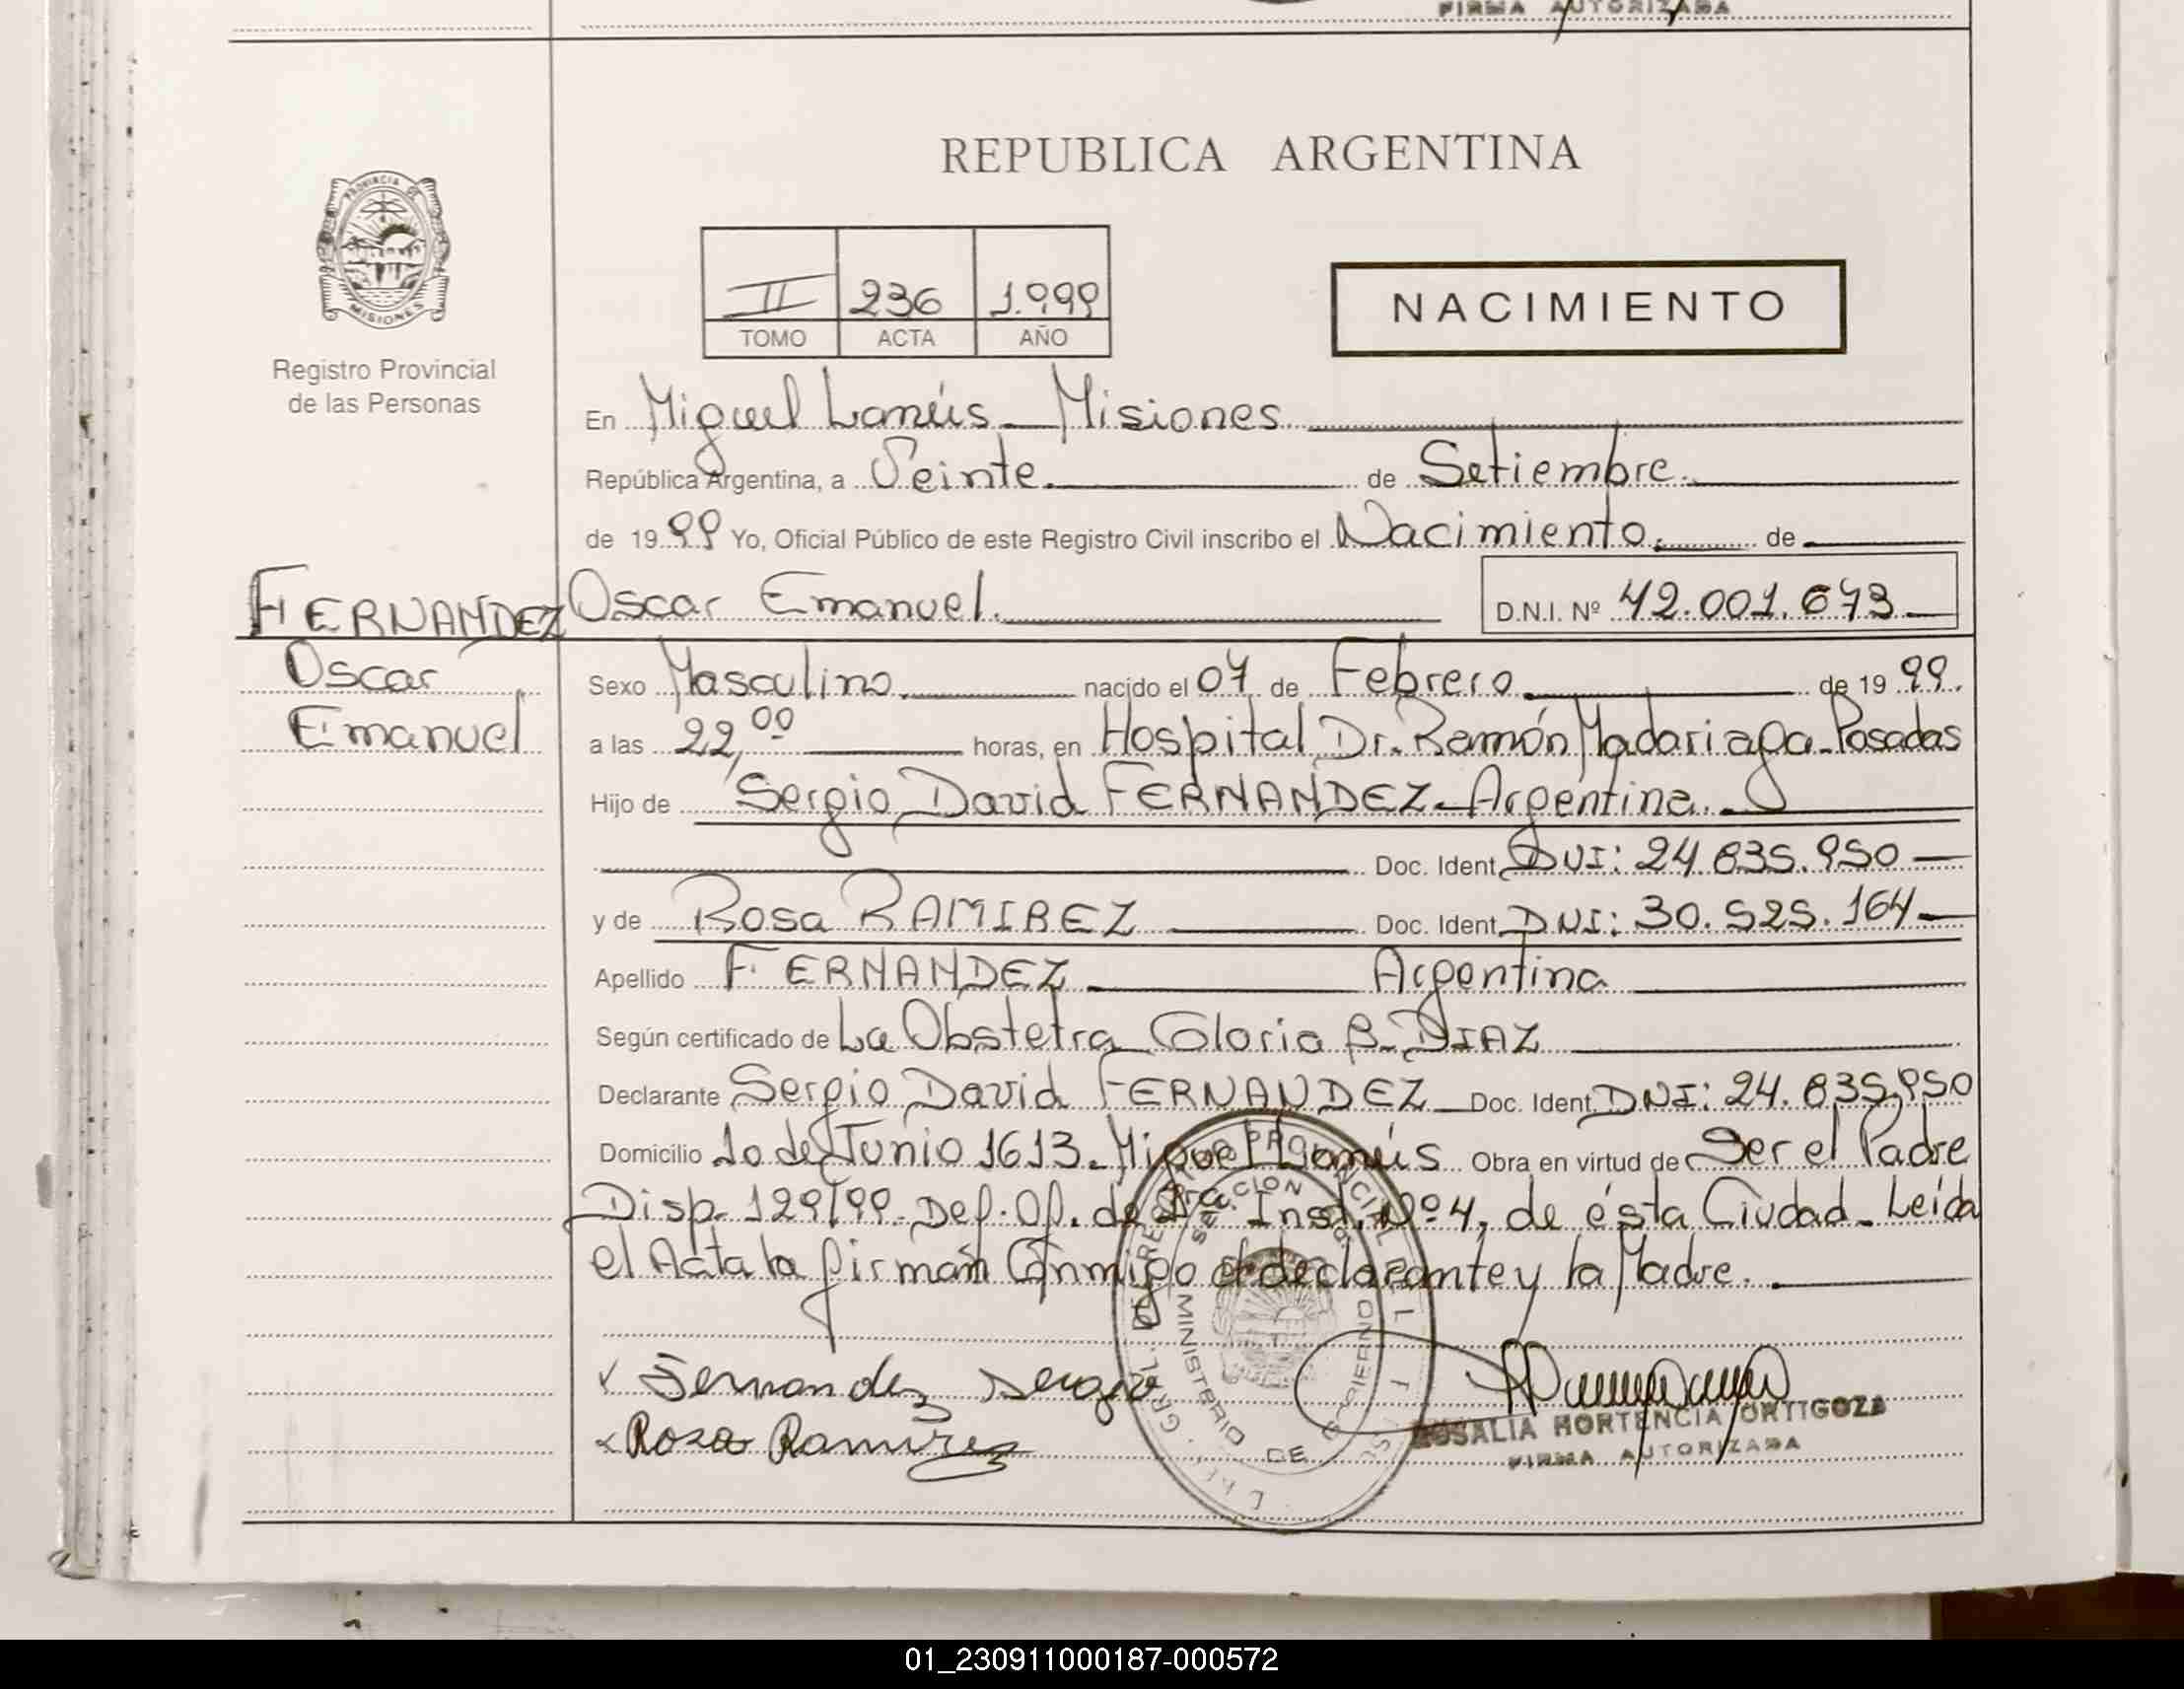 FIRMA AUTORIZADA
REPUBLICA ARGENTINA
PROVINCIA DE
MISIONES
Registro Provincial
de las Personas
II 236 1.999
TOMO ACTA AÑO
NACIMIENTO
En Miguel Lanús - Misiones
República Argentina, a Veinte de Setiembre
de 1999 Yo, Oficial Público de este Registro Civil inscribo el Nacimiento de
FERNANDEZ Oscar Emanuel. D.N.I. Nº 42.001.673
Oscar
Emanuel
Sexo Masculino nacido el 07 de Febrero de 1999.
a las 22,00 horas, en Hospital Dr. Ramón Madariaga - Posadas
Hijo de Sergio David FERNANDEZ - Argentina
Doc. Ident. DNI: 24.835.950
y de Rosa RAMIREZ Doc. Ident. DNI: 30.525.164
Apellido FERNANDEZ Argentina
Según certificado de La Obstetra Gloria B. DIAZ
Declarante Sergio David FERNANDEZ Doc. Ident. DNI: 24.835.950
Domicilio 10 de Junio 1613. Miguel Lanús Obra en virtud de Ser el Padre
Disp. 129/99. Def. Of. de 1ra Inst. Nº 4, de ésta Ciudad. Leída
el Acta la firman Conmigo el declarante y la Madre.
Fernandez Sergio
Rosa Ramirez
ROSALIA HORTENCIA ORTIGOZA
FIRMA AUTORIZADA
MINISTERIO DE GOBIERNO
01_230911000187-000572